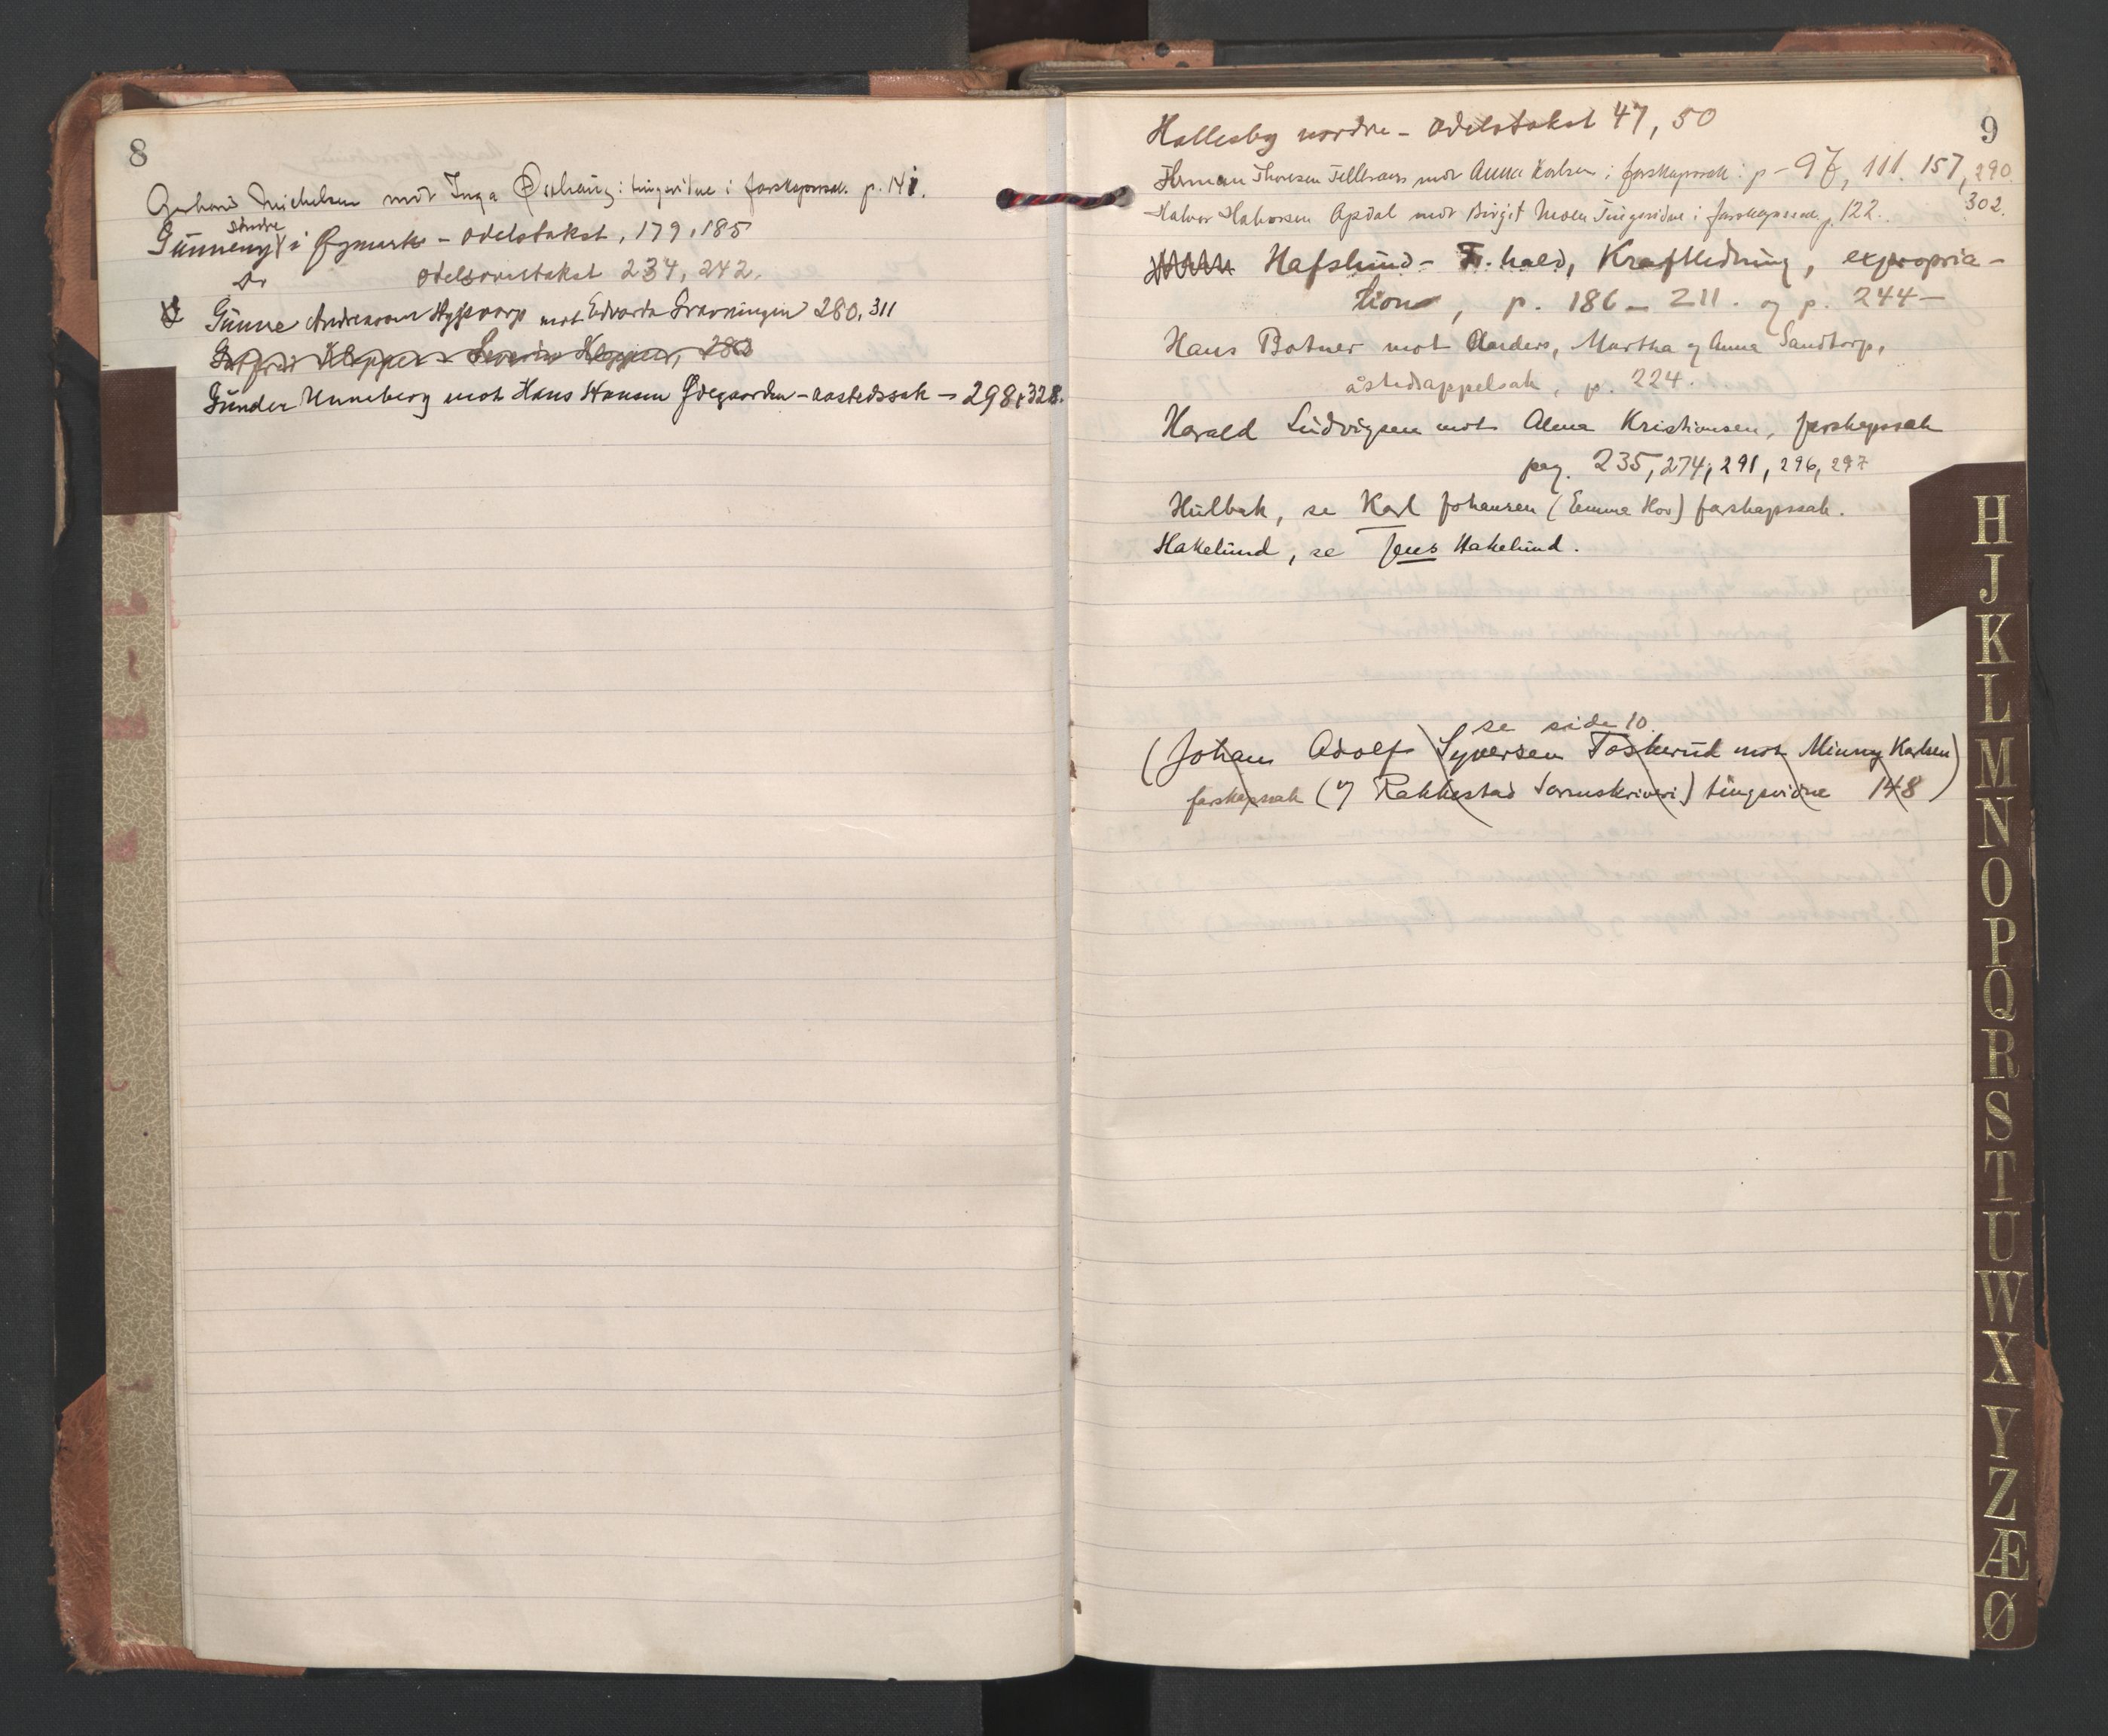 8
Gerhard Michelsen mot Inga Østhaug: tingsvidne i farskapssak. p. 141.
søndre
Gunneng i Øymark - odelstakst, 179, 185
Do odelsovertakst 234, 242.
Gunne Andreassen mot Edvarda 280, 311
Kloppen - Severin Kloppen, 282
Gunder Unneberg mot Hans Hansen Ødegaarden - aastedssak - 298, 328.
9
Hallesby nordre - odelstakst 47, 50
Herman Thoresen mot Anna Karlsen i farskapssak: p - 97, 111. 157, 290.
302.
Halvor Halvorsen Apdal mot Birgit Moen Tingsvidne i farskapssak p. 122.
Hafslund - Fr.hald, Kraftledning, expropria-
tion, p. 186 - 211. og p. 244 -
Hans Botner mot Anders, Martha og Anna Sandtorp,
åstedsappelsak, p. 224.
Harald Ludvigsen mot Alma Kristiansen, farskapssak
pag. 235, 274, 291, 296, 297
Hulbak, se Karl Johansen (Emma Hov) farskapssak.
Hakelund, se Jens Hakelund.
se side 10.
(Johan Adolf Syversen Toskerud mot Minny Karlsen)
farskapssak (v/ Rakkestad Sorenskriveri) tingsvidne 148)
H
J
K
L
M
N
O
P
Q
R
S
T
U
W
X
Y
Z
Æ
Ø